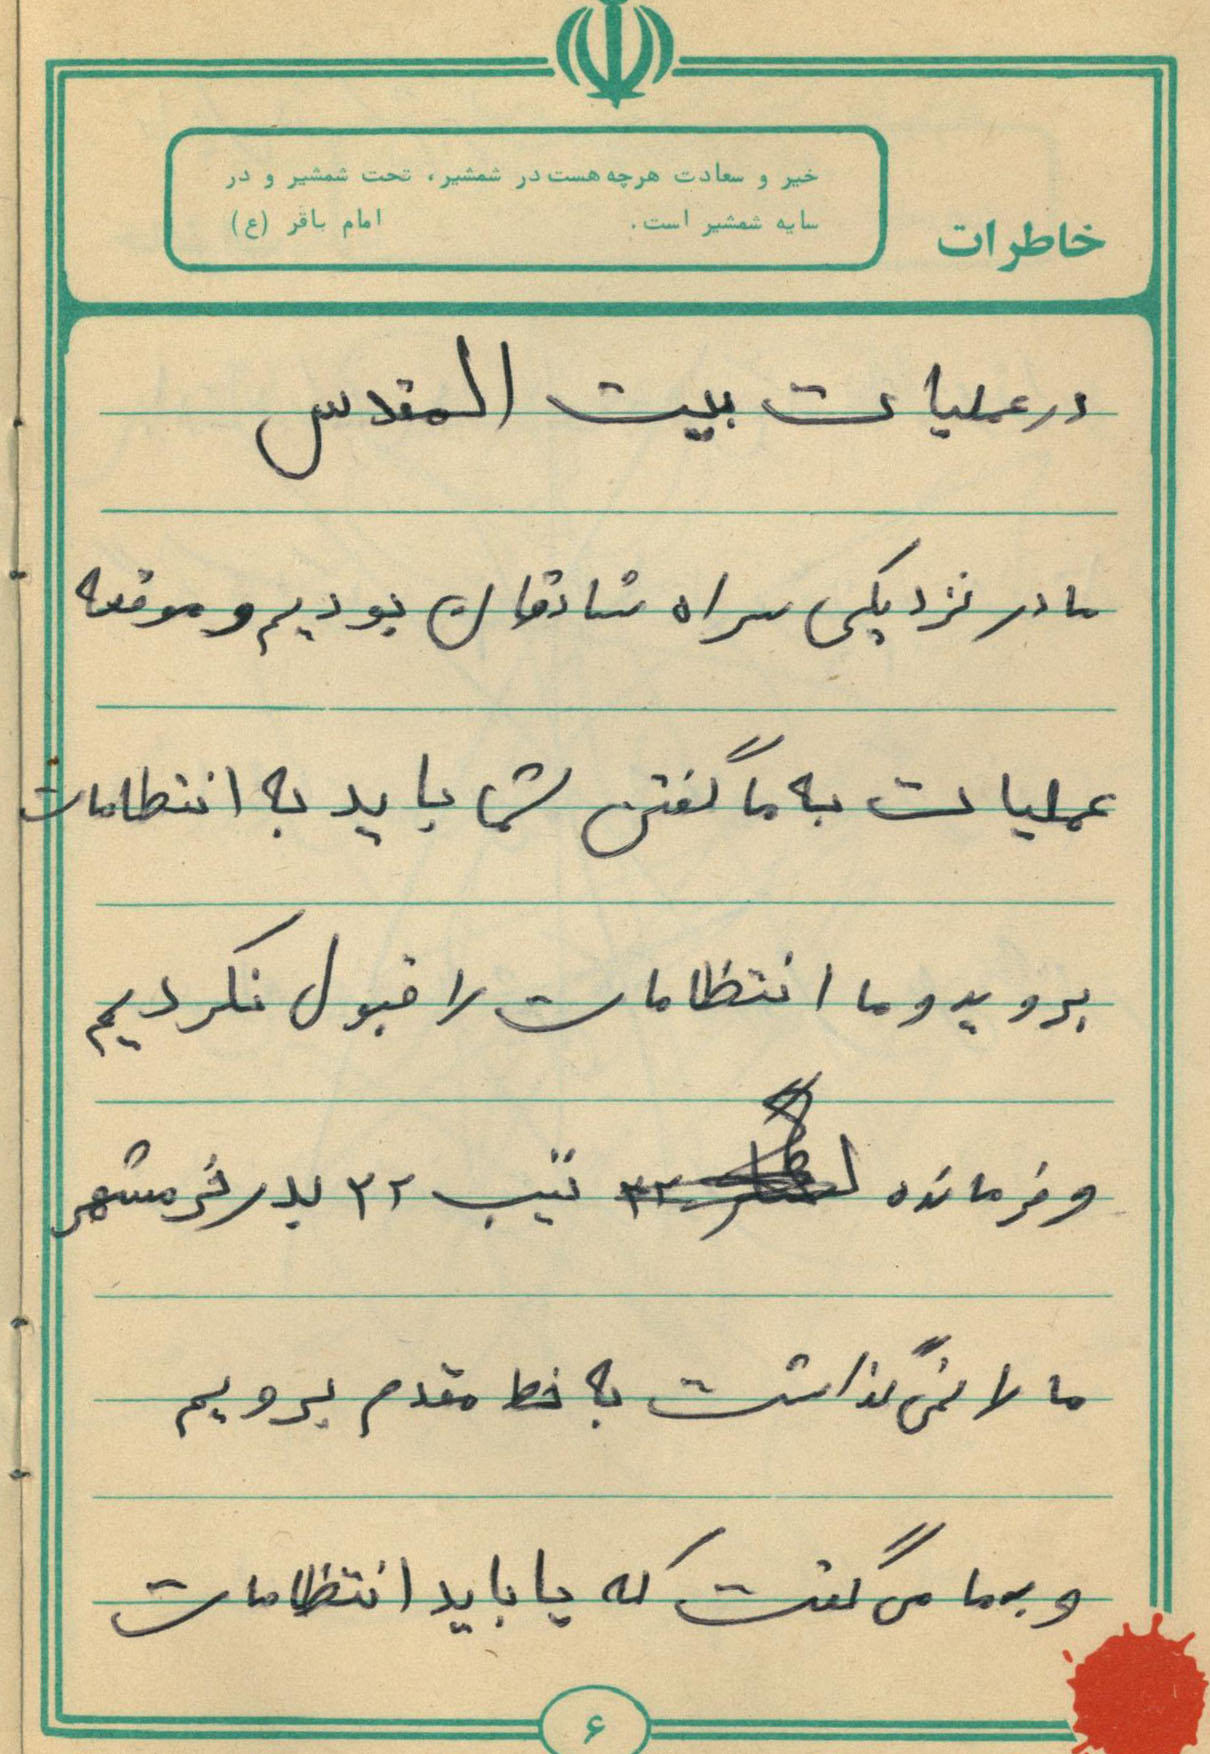 خیر و سعادت هرچه هست در شمشیر، تحت شمشیر و در
سایه شمشیر است. امام باقر (ع)
خاطرات
در عملیات بیت المقدس
ما در نزدیکی سراه شادقان بودیم و موقعه
عملیات به ما گفتن شما باید به انتطامات
بروید و ما انتظامات را قبول نکردیم
و فرمانده تیپ ۲۲ بدر خرمشهر
ما را نمی گذاشت به خط مقدم برویم
و بما می گفت که یا باید انتظامات
۶